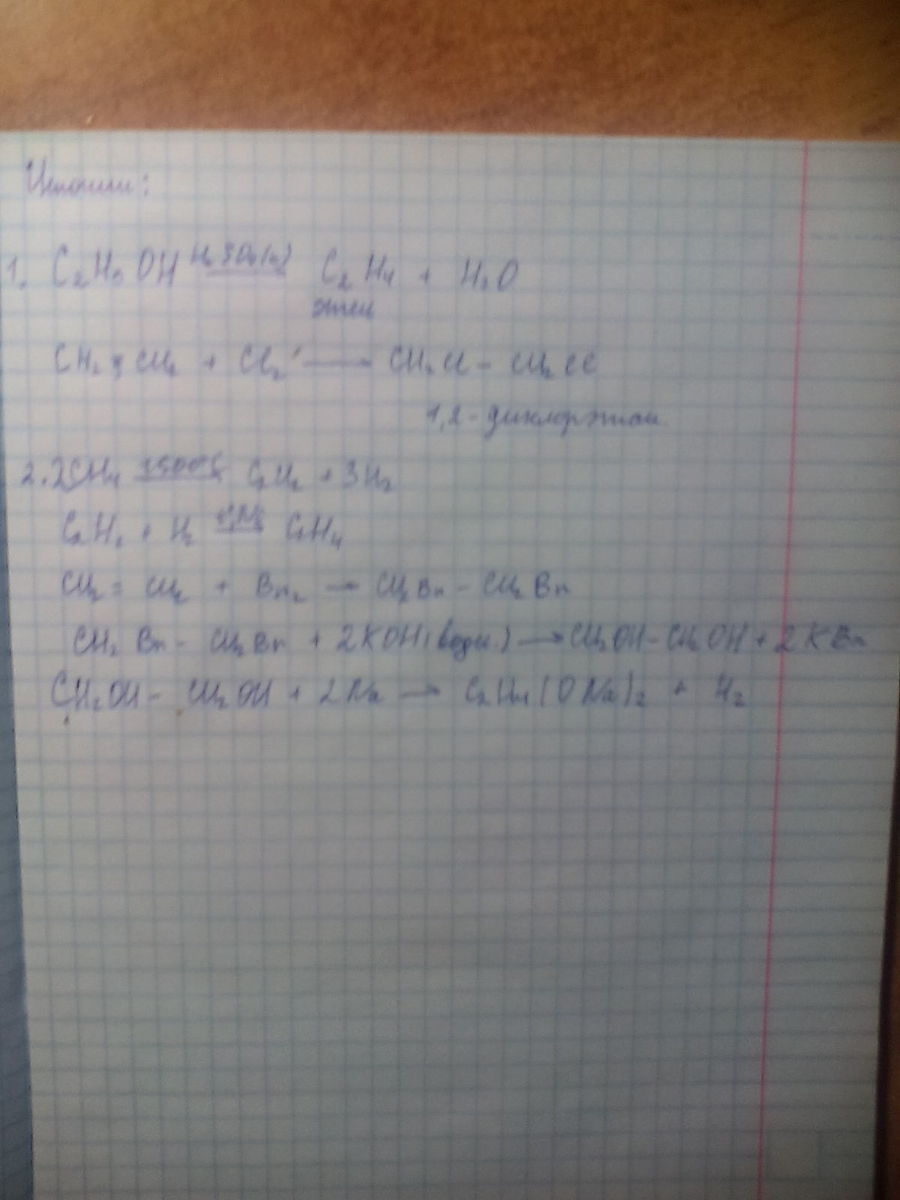 Цепочки:
1. C₂H₅OH H₂SO₄(к) C₂H₄ + H₂O
этен
CH₂ = CH₂ + Cl₂ → CH₂Cl - CH₂Cl
1,2-дихлорэтан
2. 2CH₄ 1500°C C₂H₂ + 3H₂
C₂H₂ + H₂ C₂H₄
CH₂ = CH₂ + Br₂ → CH₂Br - CH₂Br
CH₂Br - CH₂Br + 2KOH(водн.) → CH₂OH-CH₂OH + 2KBr
CH₂OH - CH₂OH + 2Na → C₂H₄(ONa)₂ + H₂